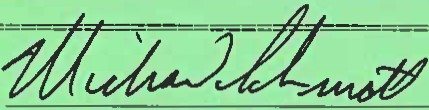 Michael Schmidt